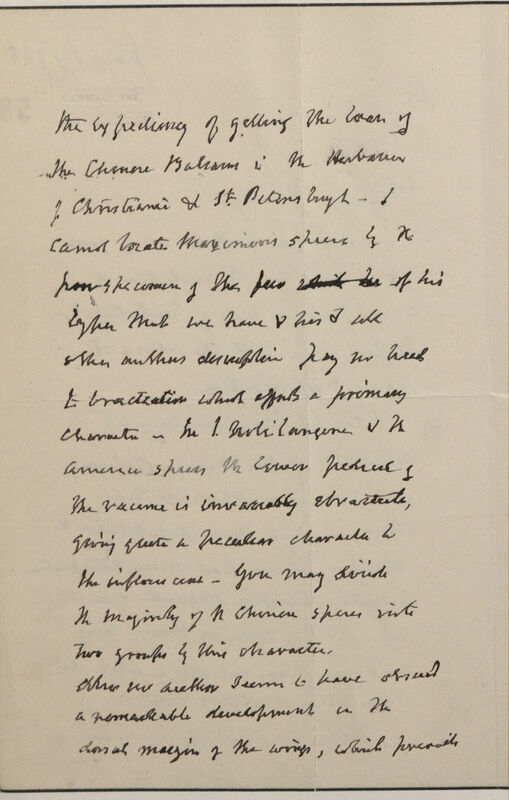 the expediency of getting the loan of
the Chinese Balsams in the Herbaria
of Christiania & St Petersburgh - I
cannot locate Maximovis species by the
poor specimens of the few of his
types that we have & his & all
other authors description pay no heed
to bracteation which affords a primary
character - In I. Noli tangere & the
American species the lower pedicel of
the raceme is invariably ebracteate,
giving quite a peculiar character to
the inflorescence - You may divide
the majority of the Chinese species into
two groups by this character.
no author seems to have observed
a remarkable development in the
dorsal margin of the wings, which prevails